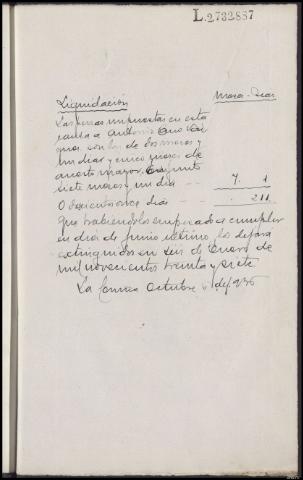 L.2732857
Liquidación Meses - Dias
Las penas impuestas en esta
causa a Antonio
son las de dos meses y
un dia y cinco meses de
arresto mayor.
siete meses y un dia 7. 1
O doscientos once dias 211
que habiendolos empezado a cumplir
en dia de Junio ultimo, los dejará
extinguidos en seis de Enero de
mil novecientos treinta y siete
La Octubre de 1936